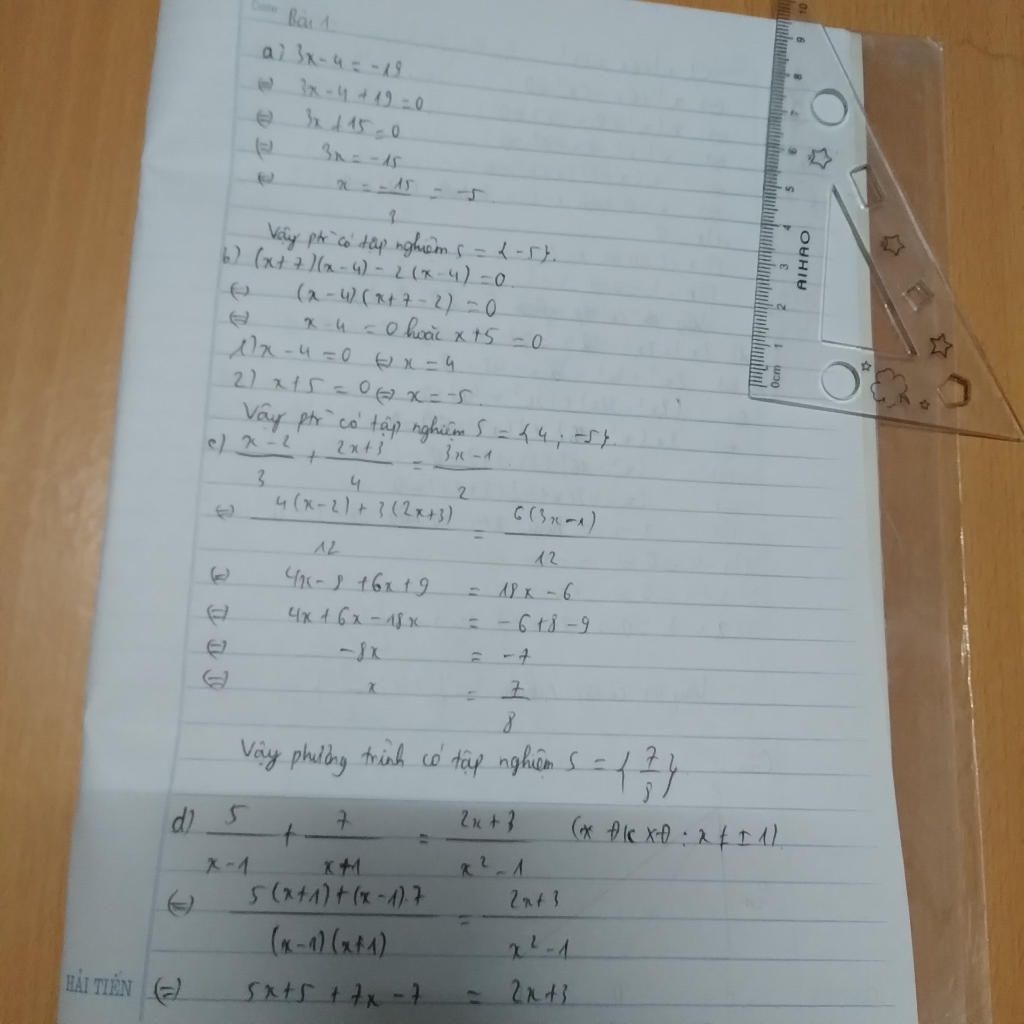 Bài 1
a) 3x - 4 = -19
⇔ 3x - 4 + 19 = 0
⇔ 3x + 15 = 0
⇔ 3x = -15
⇔ x = -15/3 = -5
Vậy ptr có tập nghiệm S = {-5}.
b) (x+7)(x-4) - 2(x-4) = 0
⇔ (x-4)(x+7-2) = 0
⇔ x-4 = 0 hoặc x+5 = 0
1) x - 4 = 0 ⇔ x = 4
2) x + 5 = 0 ⇔ x = -5
Vậy ptr có tập nghiệm S = {4; -5}
c) (x-2)/3 + (2x+3)/4 = (3x-1)/2
⇔ (4(x-2) + 3(2x+3))/12 = 6(3x-1)/12
⇔ 4x - 8 + 6x + 9 = 18x - 6
⇔ 4x + 6x - 18x = -6 + 8 - 9
⇔ -8x = -7
⇔ x = 7/8
Vậy phương trình có tập nghiệm S = {7/8}
d) 5/(x-1) + 7/(x+1) = (2x+3)/(x²-1) (x ĐKXĐ: x ≠ ±1)
⇔ (5(x+1) + (x-1).7)/((x-1)(x+1)) = (2x+3)/(x²-1)
⇔ 5x+5 + 7x - 7 = 2x+3
HẢI TIẾN
AIHAO
0cm 1 2 3 4 5 6 7 8 9 10